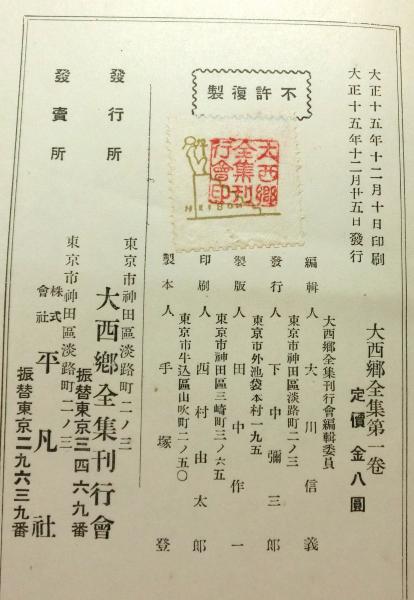 大正十五年十二月十日印刷
大正十五年十二月廿五日發行
大西鄉全集第一卷
定價 金八圓
不許復製
大西鄉全集刊行會印
HEIBON
大西鄉全集刊行會編輯委員
編輯人 大川信義
東京市神田區淡路町二ノ三
發行人 下中彌三郎
東京市外池袋本村一九五
製版人 田中作一
東京市神田區三崎町三ノ六五
印刷人 西村由太郎
東京市牛込區山吹町二ノ五〇
製本人 手塚登
東京市神田區淡路町二ノ三
發行所 大西鄉全集刊行會
振替東京三四六九番
東京市神田區淡路町二ノ三
發賣所 株式會社 平凡社
振替東京二九六三九番